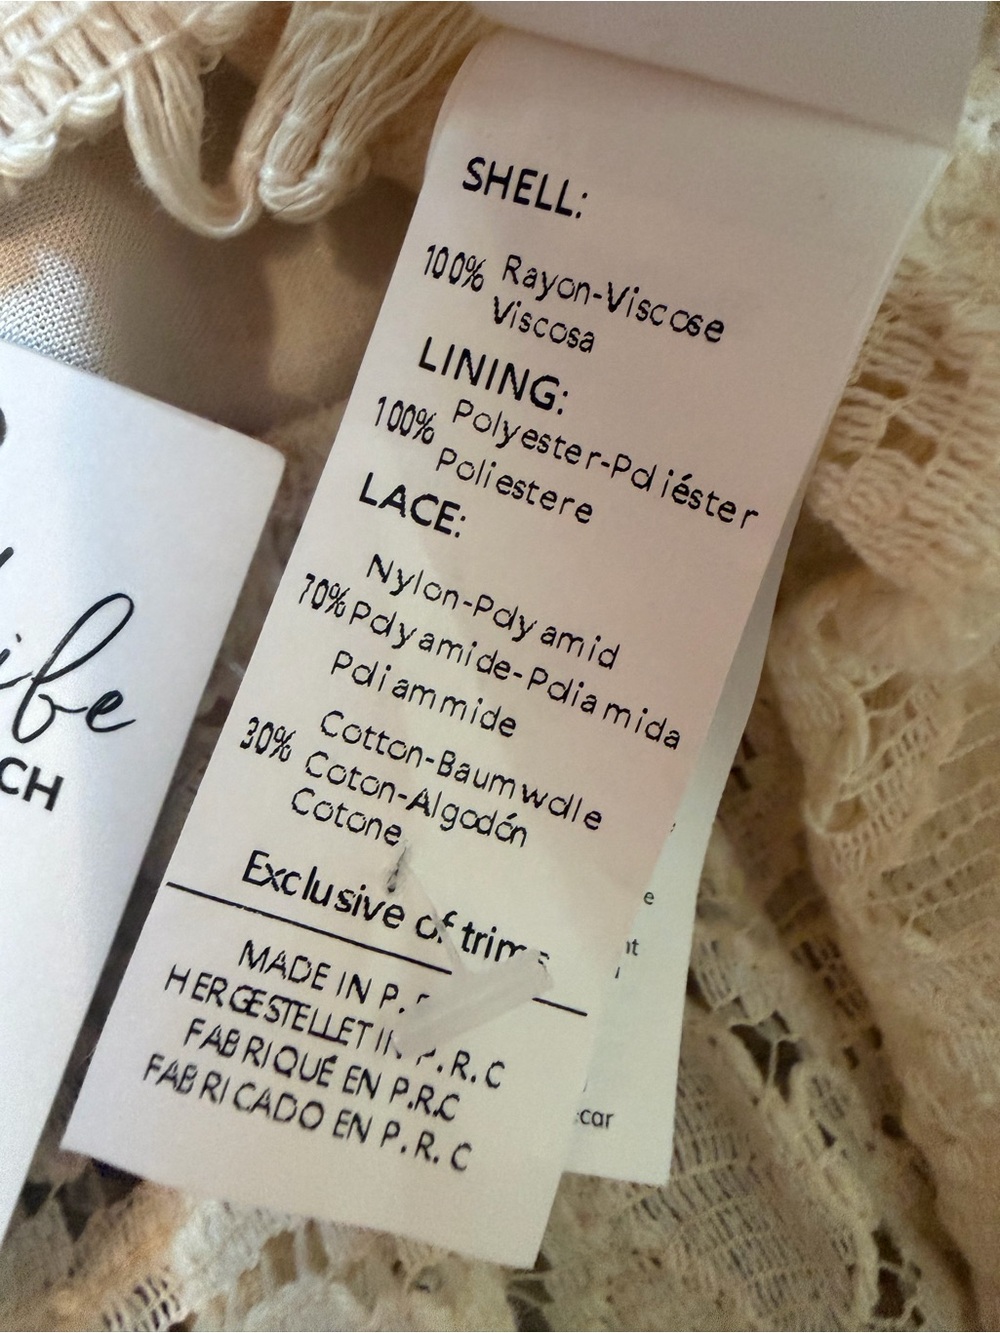 SHELL:
100% Rayon-Viscose
Viscosa
LINING:
100% Polyester-Poliéster
Poliestere
LACE:
Nylon-Polyamid
70% Polyamide-Poliamida
Poliammide
30% Cotton-Baumwolle
Coton-Algodón
Cotone
Exclusive of trims
MADE IN P.
HERGESTELLET IN P.R.C
FABRIQUÉ EN P.R.C
FABRICADO EN P.R.C
ife
CH
e
nt
car